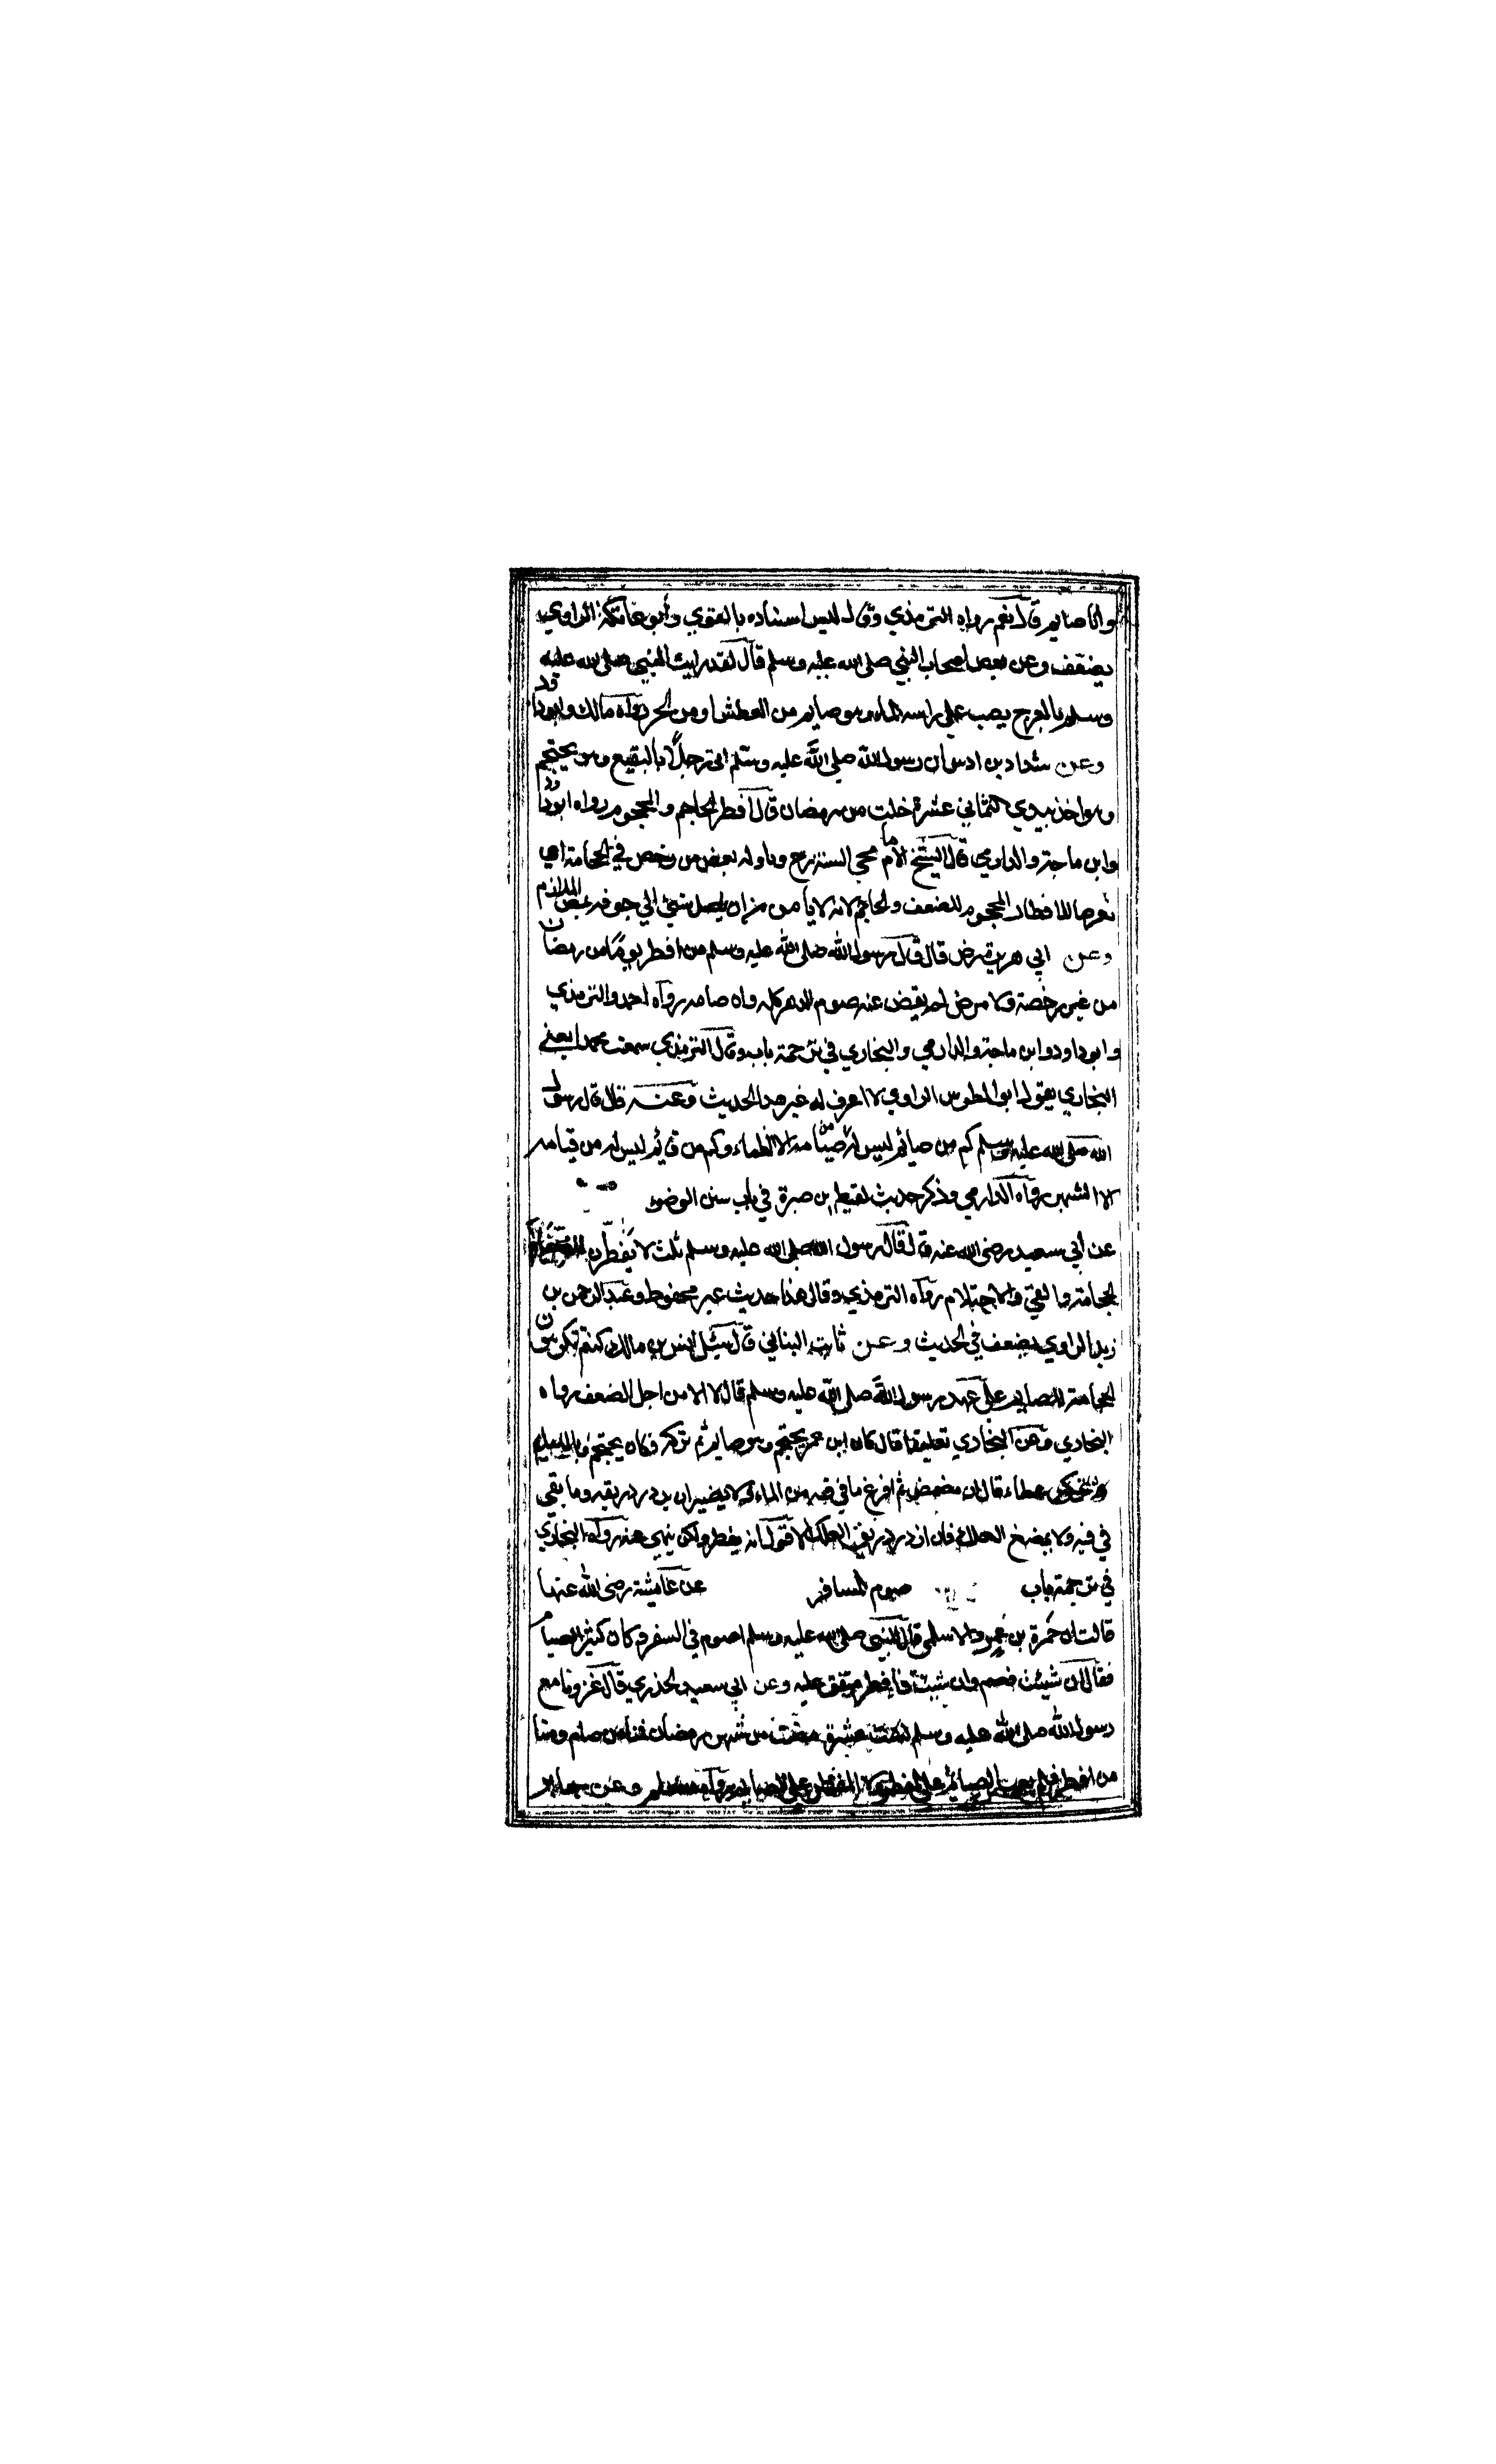 وانا صايم قال نعم رواه الترمذي وقال ليس اسناده بالقوي وأبو عاتكة الراوي
يضعف وعن بعض اصحاب النبي صلى الله عليه وسلم قال لقد رايت النبي صلى الله عليه
وسلم بالعرج يصب على راسه الماء وهو صايم من العطش او من الحر رواه مالك وابو داود
وعن شداد بن اوس ان رسول الله صلى الله عليه وسلم اتى رجلا بالبقيع وهو يحتجم
وهو اخذ بيدي لثماني عشرة خلت من رمضان قال افطر الحاجم والمحجوم رواه ابو داود
وابن ماجة والدارمي قال الشيخ الامام محي السنة رح وتاوله بعض من رخص في الحجامة اي
تعرضا للافطار المحجوم للضعف والحاجم لانه لا يامن من ان يصل شئ الي جوفه بمص الملازم
وعن ابي هريرة رض قال قال رسول الله صلى الله عليه وسلم من افطر يوما من رمضان
من غير رخصة ولا مرض لم يقض عنه صوم الدهر كله وان صامه رواه احمد والترمذي
وابو داود وابن ماجة والدارمي والبخاري في ترجمة باب وقال الترمذي سمعت محمدا يعني
البخاري يقول ابو المطوس الراوي لا اعرف له غير هذا الحديث وعنه قال قال رسول
الله صلى الله عليه وسلم كم من صائم ليس له من صيامه الا الظماء وكم من قائم ليس له من قيامه
الا السهر رواه الدارمي وذكر حديث لقيط بن صبرة في باب سنن الوضوء
عن أبي سعيد رضى الله عنه قال قال رسول الله صلى الله عليه وسلم ثلث لا يفطرن الصائم
الحجامة والقي والاحتلام رواه الترمذي وقال هذا حديث غير محفوظ وعبد الرحمن بن
زيد الراوي يضعف في الحديث وعن ثابت البناني قال سئل انس بن مالك كنتم تكرهون
الحجامة للصايم على عهد رسول الله صلى الله عليه وسلم قال لا الا من اجل الضعف رواه
البخاري وعن البخاري تعليقا قال كان ابن عمر يحتجم وهو صايم ثم تركه فكان يحتجم بالليل
وعن عطاء قال ان مضمض ثم افرغ ما في فيه من الماء لا يضير ان يزدرد ريقه وما بقي
في فيه ولا يمضغ العلك فان ازدرد ريق العلك لا قول انه يفطر ولكن ينهى عنه رواه البخاري
في ترجمة باب صوم المسافر عن عائشة رضى الله عنها
قالت ان حمزة بن عمرو الاسلمي قال للنبي صلى الله عليه وسلم اصوم في السفر وكان كثير الصيام
فقال ان شئت فصم وان شئت فأفطر متفق عليه وعن ابي سعيد الخدري قال غزونا مع
رسول الله صلى الله عليه وسلم لست عشرة مضت من شهر رمضان فمنا من صام ومنا
من افطر فلم يعب الصائم على المفطر ولا المفطر على الصايم رواه مسلم وعن جابر